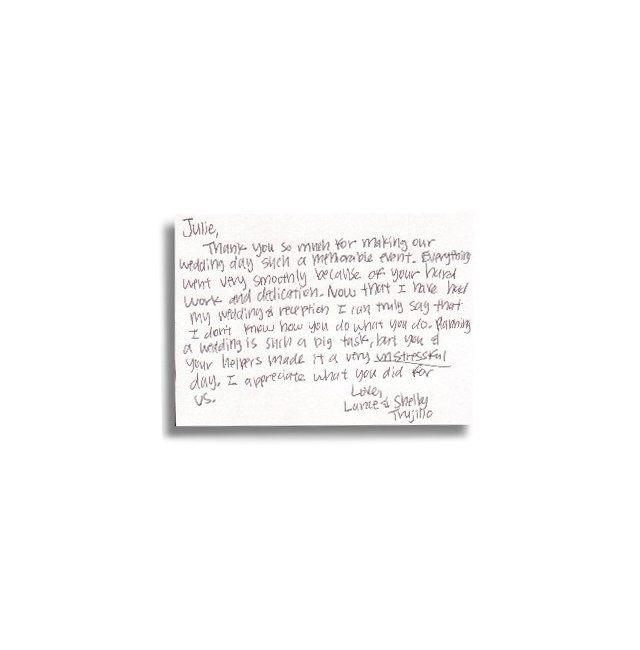 Julie,
Thank you so much for making our
wedding day such a memorable event. Everything
went very smoothly because of your hard
work and dedication. Now that I have had
my wedding & reception I can truly say that
I don't know how you do what you do. Planning
a wedding is such a big task, but you &
your helpers made it a very unstressful
day. I appreciate what you did for
us.
Love,
Lance & Shelly
Trujillo